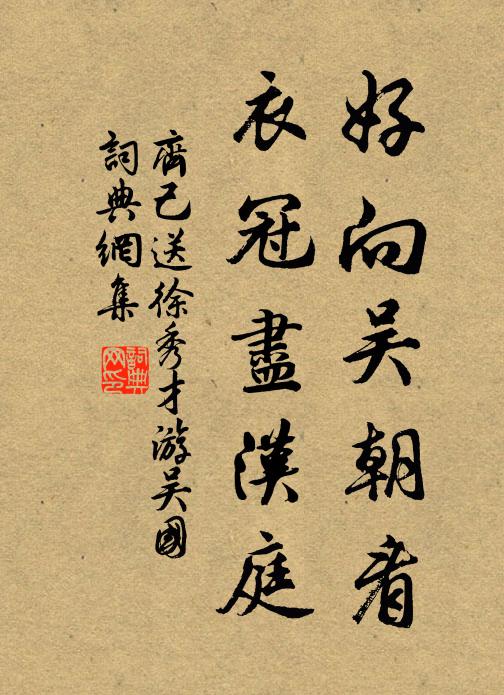 好向吴朝看
衣冠盡漢庭
齊己送徐秀才游吴國
詞典網集
詞典网印